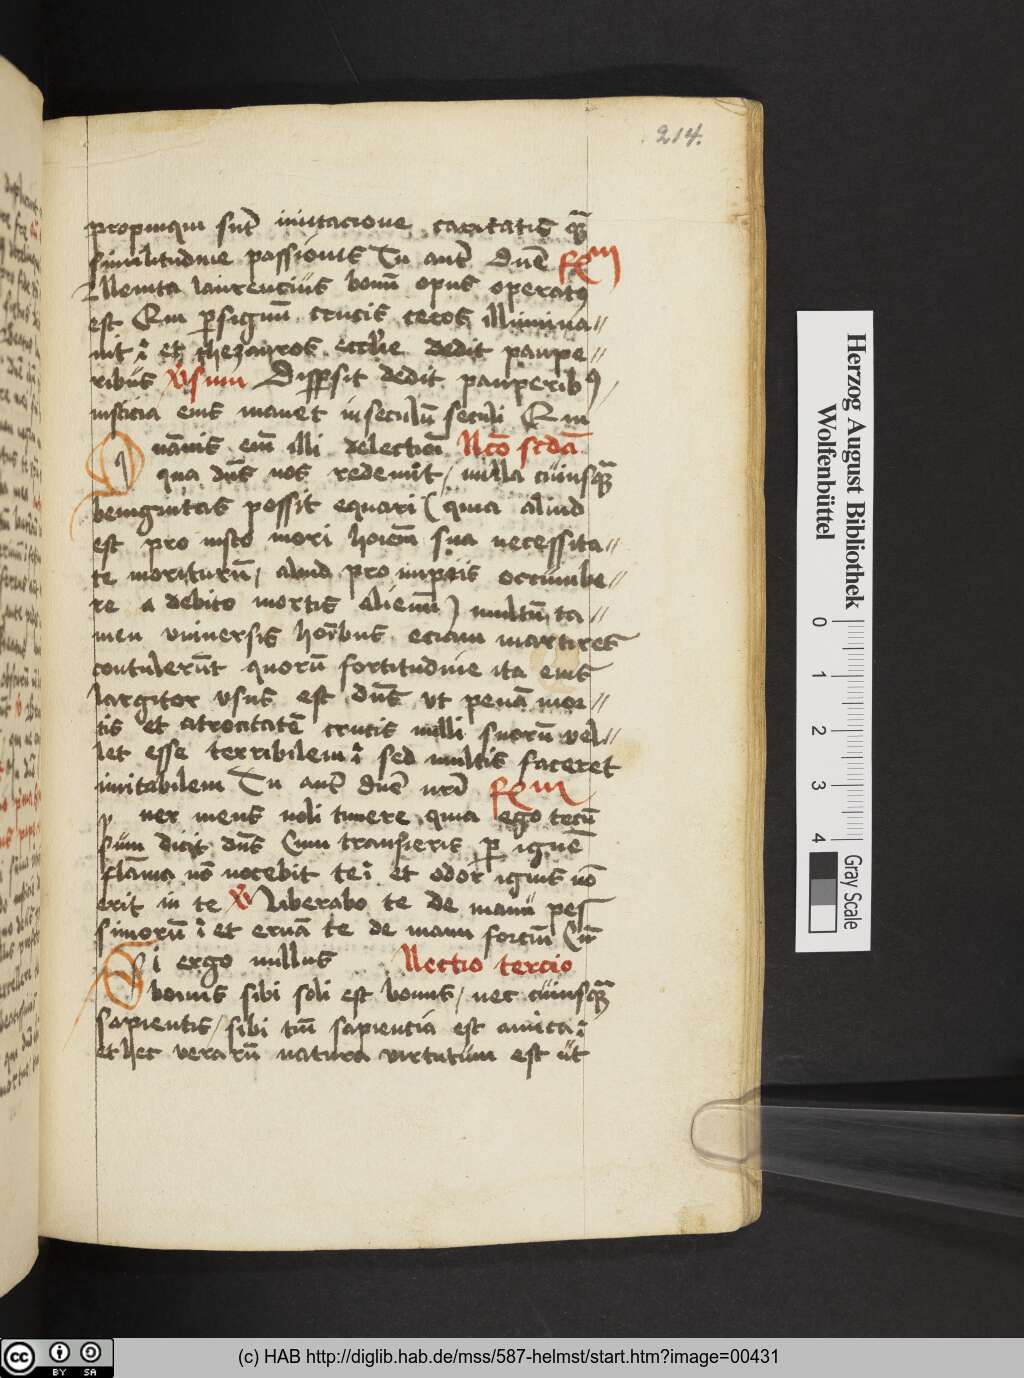 214.
propinqui sūt imitacione caritatis qᷓ
similitudine passionis Tu autē dn̄e R̄m
Lleuita laurencius bonū opus operatꝰ
est Qui ꝑ signū crucis cecos illumina⸗
uit ⁊ et thezauros eccͬie dedit paupe⸗
ribus v̾sum Dispersit dedit pauperibꝰ
iusticia eius manet in seculū seculi Qui
Nāuis em̄ illi delectiōi Ll̄co scd̄a
qua dn̄s nos redemit / nulla cuiusqᷓ
benignitas possit equari (quia aliud
est pro iusto mori hoīem sua necessita⸗
te moriturū / aliud pro impiis occumbe⸗
re a debito mortis alienū) multū ta⸗
men vniuersis hoībus eciam martires
contulerūt quorū fortitudine ita eius
largitor vsus est dn̄s vt penā mor⸗
tis et atrocitatē crucis nulli suorū vel⸗
let esse terribilem ⁊ sed multis faceret
imitabilem Tu autē dn̄e nr̄i R̄m
Puer meus noli timere quia ego tecū
sum dicit dn̄s Cum transieris ꝑ ignē
flāma nō nocebit te ⁊ et odor ignis nō
erit in te v̾ Liberabo te de manu pes
simorū ⁊ et eruā te de manu forciū Cū
Si ergo nullus Llectio tercio
bonus sibi soli est bonus / nec cuiusqᷓ
sapientis / sibi tm̄ sapiencia est amica ⁊
et hec verarū natura virtutum est ut
Herzog August Bibliothek
Wolfenbüttel
0 1 2 3 4
Gray Scale
cc BY SA
(c) HAB http://diglib.hab.de/mss/587-helmst/start.htm?image=00431